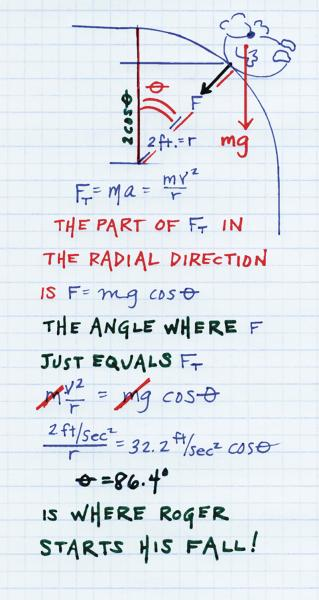 θ
2cosθ
F
2 ft. = r
mg
F_T = ma = mv²/r
THE PART OF F_T IN
THE RADIAL DIRECTION
IS F = mg cosθ
THE ANGLE WHERE F
JUST EQUALS F_T
mv²/r = mg cosθ
2 ft/sec²/r = 32.2 ft/sec² cosθ
θ = 86.4°
IS WHERE ROGER
STARTS HIS FALL!